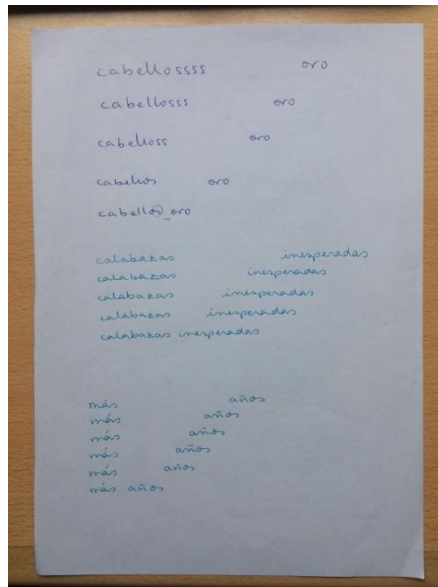 cabellossss oro
cabellosss oro
cabelloss oro
cabellos oro
cabellos_oro
calabazas inesperadas
calabazas inesperadas
calabazas inesperadas
calabazas inesperadas
calabazas inesperadas
más años
más años
más años
más años
más años
más años